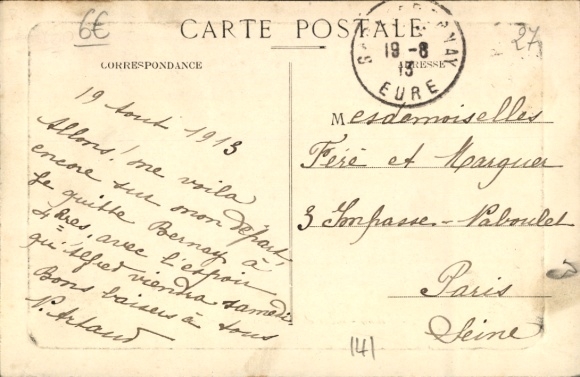 6€
CARTE POSTALE
27
CORRESPONDANCE
ADRESSE
BERNAY
19-8
13
EURE
19 Aout 1913
Allons! me voila
encore sur mon départ
Je quitte Bernay à
4 hres, avec l'espoir
qu'Alfred viendra samedi
Bons baisers à tous
P. Artaud
Mesdemoiselles
Féré et Marguer
3 Impasse - Naboulet
Paris
Seine
141